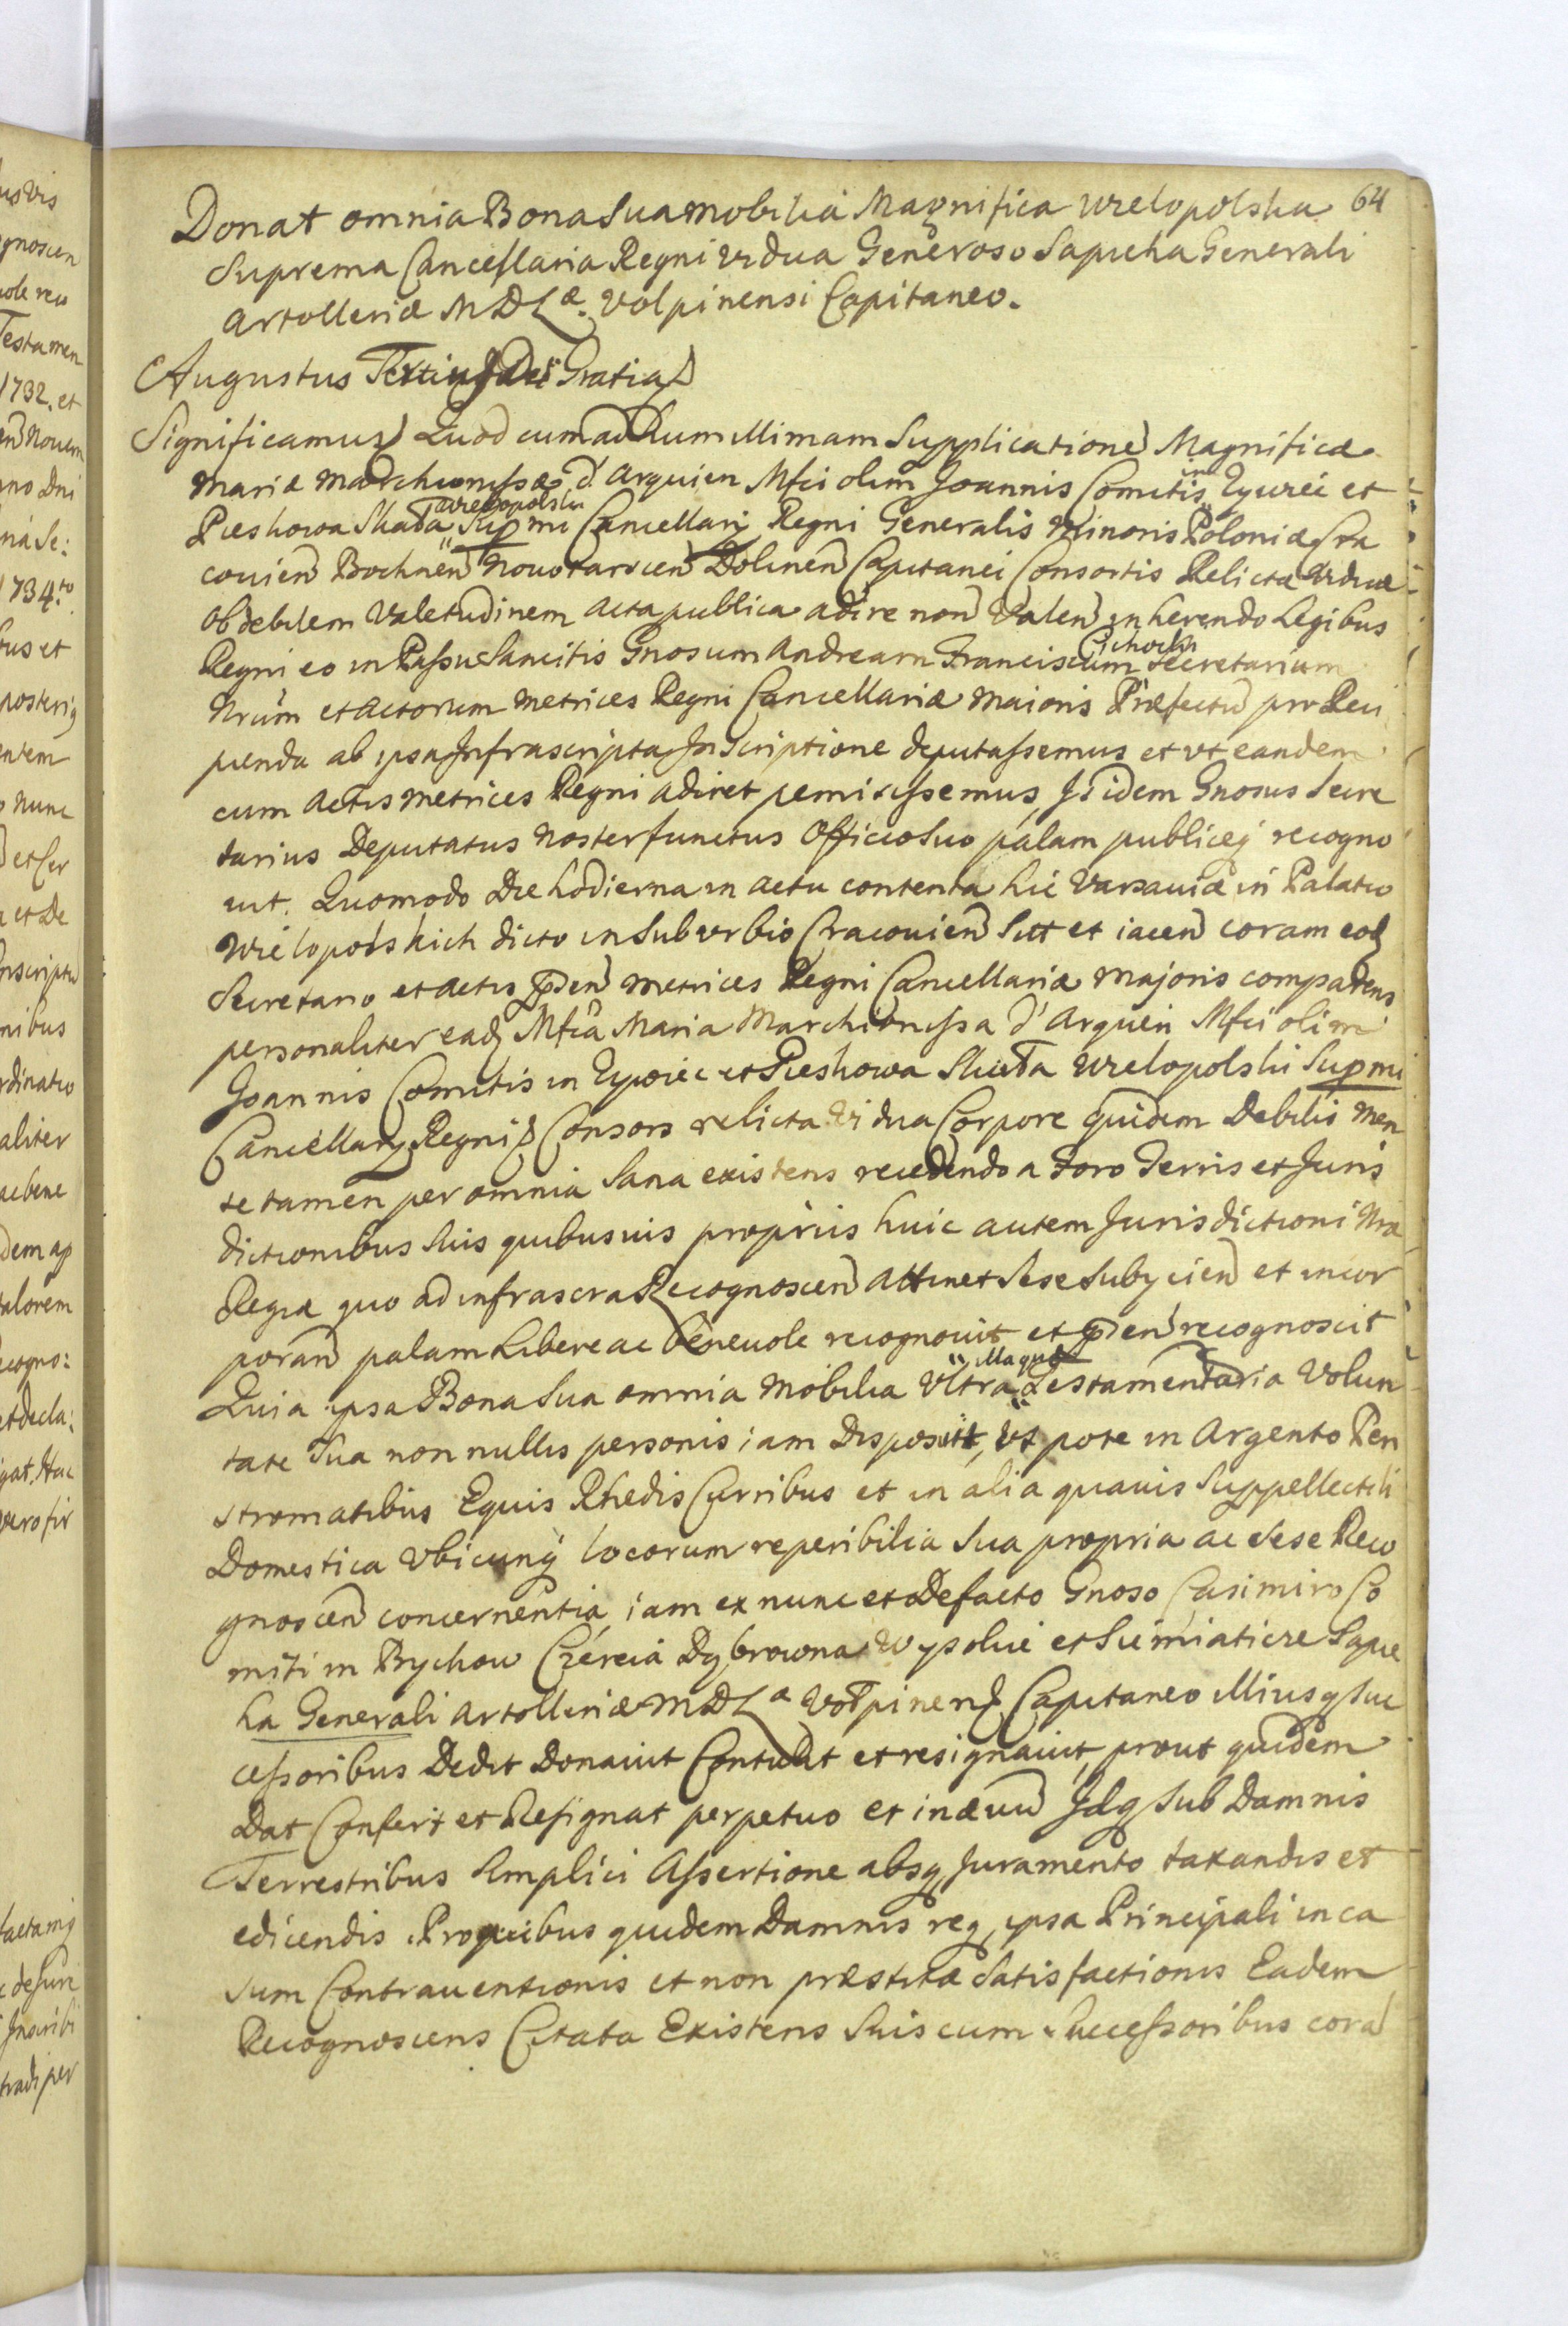 64
Donat omnia Bona Sua mobilia Magnifica Wielopolska
Suprema Cancellaria Regni Vidua Generoso Sapieha Generali
Artolleriæ MDLæ. Volpinensi Capitaneo.
Augustus Tertius Dei Gratia
Significamus Quod cum ad humillimam Supplicatione Magnificæ
Mariæ Marchionissæ d'Arquien Mfci olim Joannis Comitis in Zywiec et
Pieskowa Skała Wielopolski Supmi Cancellarij Regni Generalis Minoris Poloniæ Cra
couien Bochnen Nouotarscien Dolinen Capitanei Consortis Relictæ Viduæ
ob debilem Valetudinem Acta publica adire non Valen inherendo Legibus
Regni eo in Passu Sancitis Gnosum Andream Franciscum Cichocki Secretarium
Nrum et Actorum Metrices Regni Cancellariæ Maioris Præfectu pro Reci
pienda ab ipsa Infrascripta Inscriptione deputassemus et vt eandem
cum Actis Metrices Regni adiret permisissemus, Is idem Gnosus Secre
tarius Deputatus Noster functus Officio Suo palam publiceq recogno
uit. Quomodo Die hodierna in Actu contenta hic Varsauiæ in Palatio
Wielopolskich dicto in Suburbio Cracouien Sitt et iacen coram eod
Secretario et Actis pñden Metrices Regni Cancellariæ Majoris comparens
personaliter ead Mfca Maria Marchionissa d'Arquien Mfci olim
Joannis Comitis in Zywiec et Pieskowa Skała Wielopolski Supmi
Cancellarij Regni Consors relicta Vidua Corpore quidem Debilis Men
te tamen per omnia Sana existens recedendo a Foro Terris et Juris
dictionibus Suis quibusuis proprijs huic autem Jurisdictioni Nrae
Regiæ quo ad infrascra Recognoscen attinet Sese Subijcien et incor
poran palam Libere ac beneuole recognouit et pnden recognoscit
Quia ipsa Bona Sua omnia Mobilia Vltra illa quæ Testamentaria Volun
tate Sua nonnullis personis iam Disposuit, vt pote in Argento Peri
stromatibus Equis Rhedis Curribus et in alia quauis Suppellectili
Domestica Vbicunq locorum reperibilia Sua propria ac Sese Reco
gnoscen concernentia, iam ex nunc et Defacto Gnoso Casimiro Co
miti in Bychow Czereia Dąbrowna Wysokie et Siemiaticze Sapie
ha Generali Artolleriæ MDLæ Volpinens Capitaneo illiusq Suc
cessoribus Dedit Donauit Contulit et resignauit, prout quidem
Dat Confert et Resignat perpetuo et in æuu Idq Sub Damnis
Terrestribus Simplici Assertione absq Juramento taxandis et
edicendis. Pro quibus quidem Damnis req ipsa Principali in ca
sum Contrauentionis et non præstitæ Satisfactionis Eadem
Recognoscens Citata Existens Suis cum Successoribus cora